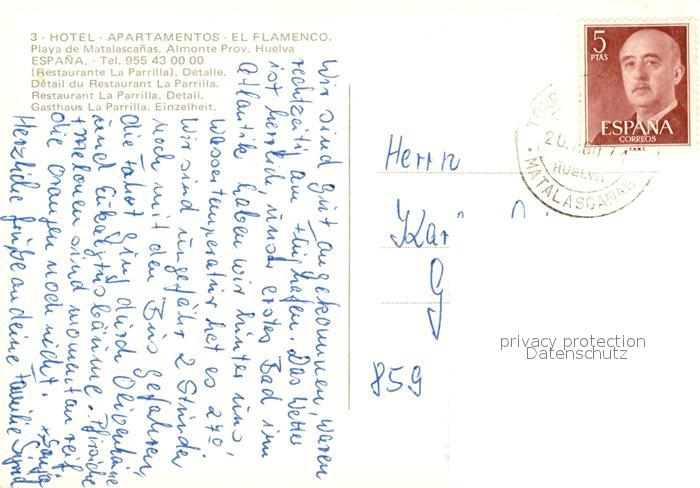 3 - HOTEL - APARTAMENTOS - EL FLAMENCO.
Playa de Matalascañas. Almonte Prov. Huelva
ESPAÑA. - Tel. 955 43 00 00
(Restaurante La Parrilla), Detalle.
Détail du Restaurant La Parrilla.
Restaurant La Parrilla. Detail.
Gasthaus La Parrilla. Einzelheit.
Wir sind gut angekommen, waren
rechtzeitig am Flughafen. Das Wetter
ist herrlich, unser erstes Bad im
Atlantik haben wir hinter uns,
Wassertemperatur hat es 27°.
Wir sind ungefähr 2 Stunden
noch mit dem Bus gefahren,
die Fahrt ging durch Olivenhaine
und Eukalyptusbäume. Pfirsiche
+ Melonen sind momentan reif
die Orangen noch nicht.
Herzliche Grüße an deine Familie
5
PTAS
ESPAÑA
CORREOS
HUELVA
MATALASCAÑAS
Herrn
G
859
privacy protection
Datenschutz